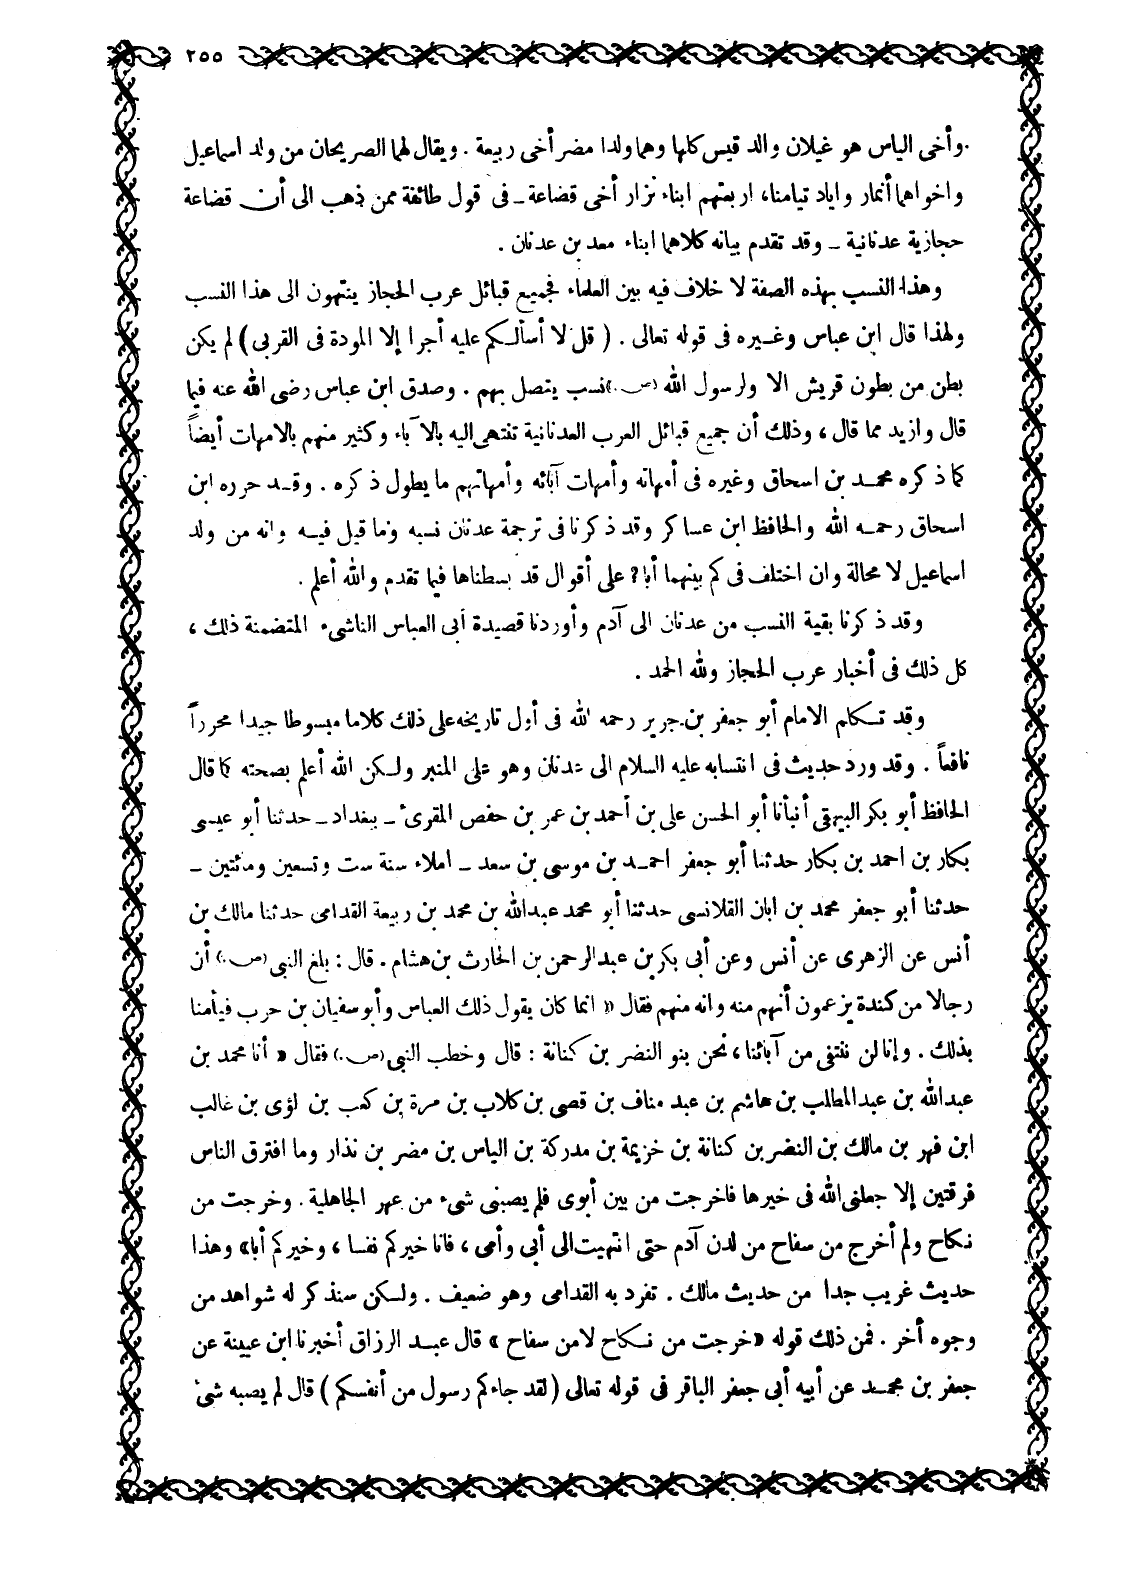 ٢٥٥
وأخى الياس هو غيلان والد قيس كلها وهما ولدا مضر أخى ربيعة . ويقال لهما الصريحان من ولد اسماعيل
واخواهما أنمار واياد تيامنا، اربعتهم ابناء نزار أخى قضاعة ـ فى قول طائفة ممن ذهب الى أن قضاعة
حجازية عدنانية ـ وقد تقدم بيانه كلاهما ابناء معد بن عدنان .
وهذا النسب بهذه الصفة لا خلاف فيه بين العلماء فجميع قبائل عرب الحجاز ينتهون الى هذا النسب
ولهذا قال ابن عباس وغيره فى قوله تعالى . ( قل لا أسألكم عليه أجرا إلا المودة فى القربى ) لم يكن
بطن من بطون قريش الا ولرسول الله (ص.) نسب يتصل بهم . وصدق ابن عباس رضى الله عنه فيما
قال وازيد مما قال ، وذلك أن جميع قبائل العرب العدنانية تنتهى اليه بالآباء وكثير منهم بالامهات أيضاً
كما ذكره محمد بن اسحاق وغيره فى أمهاته وأمهات آبائه وأمهاتهم ما يطول ذكره . وقد حرره ابن
اسحاق رحمه الله والحافظ ابن عساكر وقد ذكرنا فى ترجمة عدنان نسبه وما قيل فيه وانه من ولد
اسماعيل لا محالة وان اختلف فى كم بينهما أبا؟ على أقوال قد بسطناها فيما تقدم والله أعلم .
وقد ذكرنا بقية النسب من عدنان الى آدم وأوردنا قصيدة أبى العباس الناشىء المتضمنة ذلك ،
كل ذلك فى أخبار عرب الحجاز ولله الحمد .
وقد تكلم الامام أبو جعفر بن جرير رحمه الله فى أول تاريخه على ذلك كلاما مبسوطا جيدا محرراً
نافعاً . وقد ورد حديث فى انتسابه عليه السلام الى عدنان وهو على المنبر ولكن الله أعلم بصحته كما قال
الحافظ أبو بكر البيهقى أنبأنا أبو الحسن على بن أحمد بن عمر بن حفص المقرىٔ ـ ببغداد ـ حدثنا أبو عيسى
بكار بن احمد بن بكار حدثنا أبو جعفر احمد بن موسى بن سعد ـ املاء سنة ست وتسعين ومائتين ـ
حدثنا أبو جعفر محمد بن ابان القلانسى حدثنا أبو محمد عبدالله بن محمد بن ربيعة القدامى حدثنا مالك بن
أنس عن الزهرى عن أنس وعن أبى بكر بن عبد الرحمن بن الحارث بن هشام . قال : بلغ النبى (ص.) أن
رجالا من كندة يزعمون أنهم منه وانه منهم فقال « انما كان يقول ذلك العباس وأبو سفيان بن حرب فيأمنا
بذلك . وإنا لن ننتفى من آبائنا ، نحن بنو النضر بن كنانة : قال وخطب النبى (ص.) فقال « أنا محمد بن
عبدالله بن عبد المطلب بن هاشم بن عبد مناف بن قصى بن كلاب بن مرة بن كعب بن لؤى بن غالب
ابن فهر بن مالك بن النضر بن كنانة بن خزيمة بن مدركة بن الياس بن مضر بن نذار وما افترق الناس
فرقتين إلا جعلنى الله فى خيرها فاخرجت من بين أبوى فلم يصبنى شىء من عهر الجاهلية . وخرجت من
نكاح ولم أخرج من سفاح من لدن آدم حتى انتهيت الى أبى وأمى ، فانا خيركم نفسا ، وخيركم أبا» وهذا
حديث غريب جدا من حديث مالك . تفرد به القدامى وهو ضعيف . ولكن سنذكر له شواهد من
وجوه أخر . فمن ذلك قوله «خرجت من نكاح لا من سفاح » قال عبد الرزاق أخبرنا ابن عيينة عن
جعفر بن محمد عن أبيه أبى جعفر الباقر فى قوله تعالى ( لقد جاءكم رسول من أنفسكم ) قال لم يصبه شىٔ